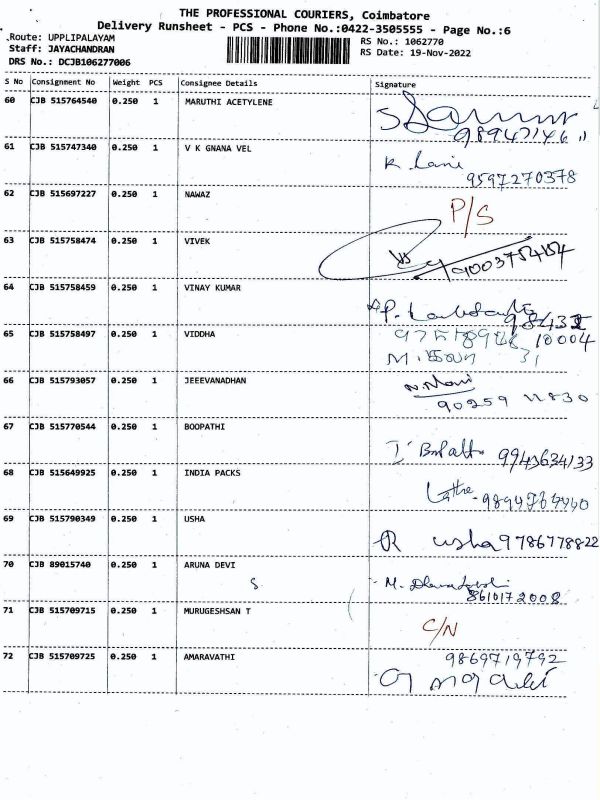 THE PROFESSIONAL COURIERS, Coimbatore
Delivery Runsheet - PCS - Phone No.:0422-3505555 - Page No.:6
Route: UPPLIPALAYAM
RS No.: 1062770
Staff: JAYACHANDRAN
RS Date: 19-Nov-2022
DRS No.: DCJB106277006
S No Consignment No Weight PCS Consignee Details Signature
60 CJB 515764540 0.250 1 MARUTHI ACETYLENE
61 CJB 515747340 0.250 1 V K GNANA VEL
9597270378
62 CJB 515697227 0.250 1 NAWAZ
P/S
63 CJB 515758474 0.250 1 VIVEK
64 CJB 515758459 0.250 1 VINAY KUMAR
65 CJB 515758497 0.250 1 VIDDHA
10004
31
66 CJB 515793057 0.250 1 JEEEVANADHAN
67 CJB 515770544 0.250 1 BOOPATHI
9943634133
68 CJB 515649925 0.250 1 INDIA PACKS
69 CJB 515790349 0.250 1 USHA
R usha 9786778822
70 CJB 89015740 0.250 1 ARUNA DEVI
8610172008
71 CJB 515709715 0.250 1 MURUGESHSAN T
C/N
72 CJB 515709725 0.250 1 AMARAVATHI
9869719792